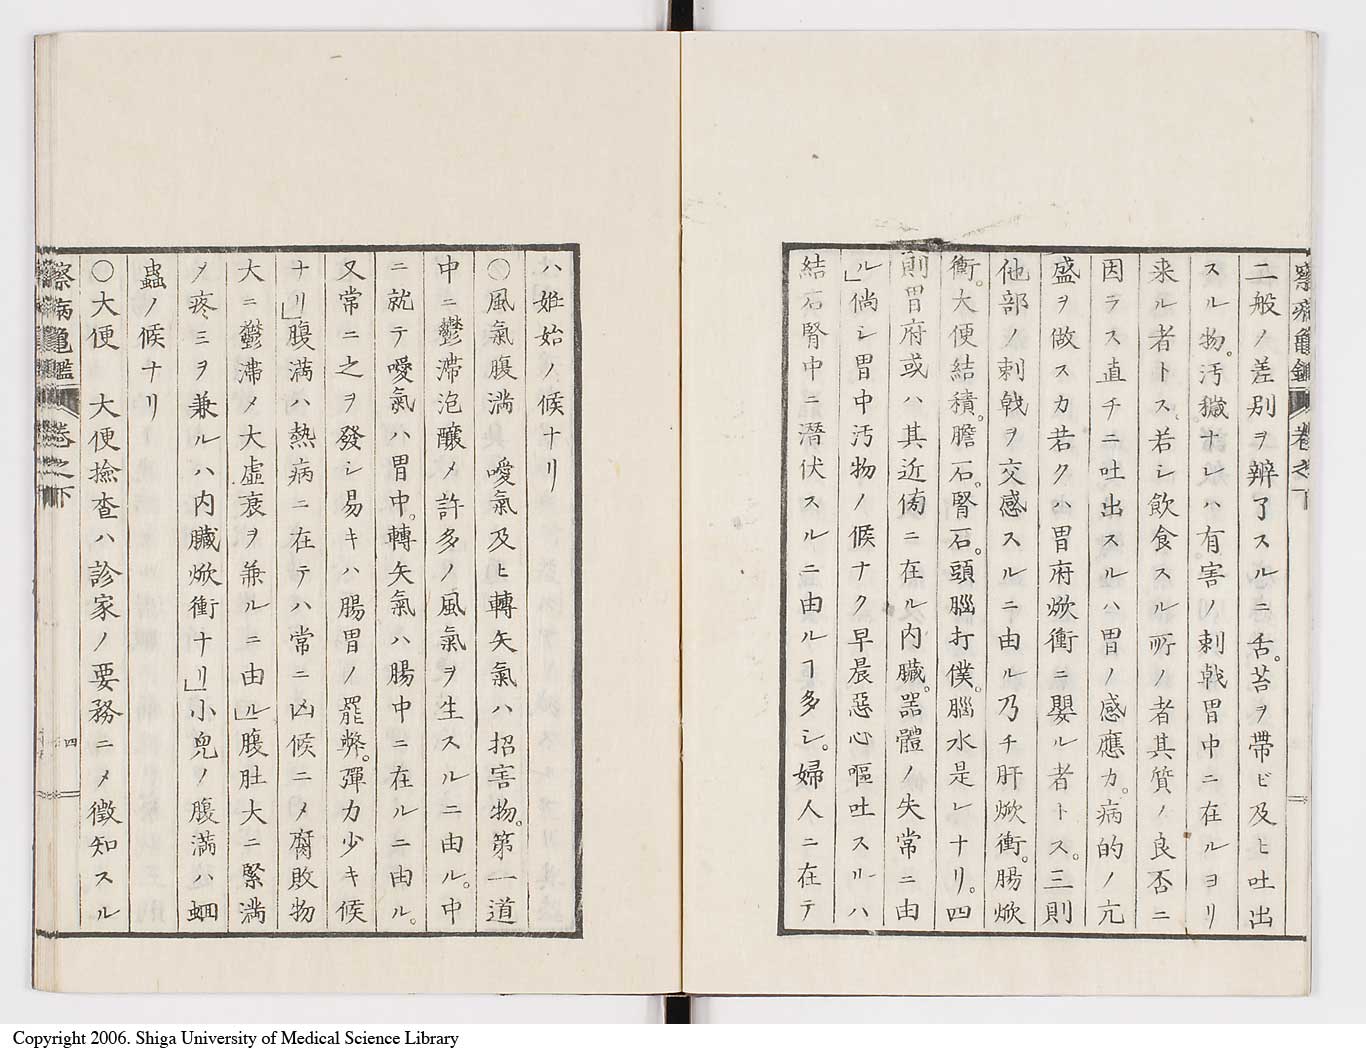 察病亀鑑 卷之下
二般ノ差別ヲ辨了スルニ舌。苔ヲ帶ビ及ヒ吐出
スル物。汚穢ナレハ有。害ノ刺戟胃中ニ在ルヨリ
来ル者トス。若シ飲食スル所ノ者其質ノ良否ニ
因ラス直チニ吐出スルハ胃ノ感應力。病的ノ亢
盛ヲ做スカ若クハ胃府焮衝ニ嬰ル者トス。三則
他部ノ刺戟ヲ交感スルニ由ル乃チ肝焮衝。腸焮
衝。大便結積。膽石。腎石。頭腦打僕。腦水是レナリ。四
則胃府或ハ其近傍ニ在ル内臓。器體ノ失常ニ由
ル」倘シ胃中汚物ノ候ナク早晨惡心嘔吐スルハ
結石腎中ニ潜伏スルニ由ルヿ多シ。婦人ニ在テ
ハ姙始ノ候ナリ
〇風氣腹満 噯氣及ヒ轉矢氣ハ招害物。第一道
中ニ鬱滞泡釀メ許多ノ風氣ヲ生スルニ由ル。中
ニ就テ噯氣ハ胃中。轉矢氣ハ腸中ニ在ルニ由ル。
又常ニ之ヲ發シ易キハ腸胃ノ罷弊。彈力少キ候
ナリ」腹満ハ熱病ニ在テハ常ニ凶候ニメ腐敗物
大ニ鬱滞メ大虚衰ヲ兼ルニ由ル」腹肚大ニ緊満
メ疼ミヲ兼ルハ内臓焮衝ナリ」小兒ノ腹満ハ蛔
蟲ノ候ナリ
〇大便 大便撿査ハ診家ノ要務ニメ徴知スル
察病亀鑑 卷之下
四